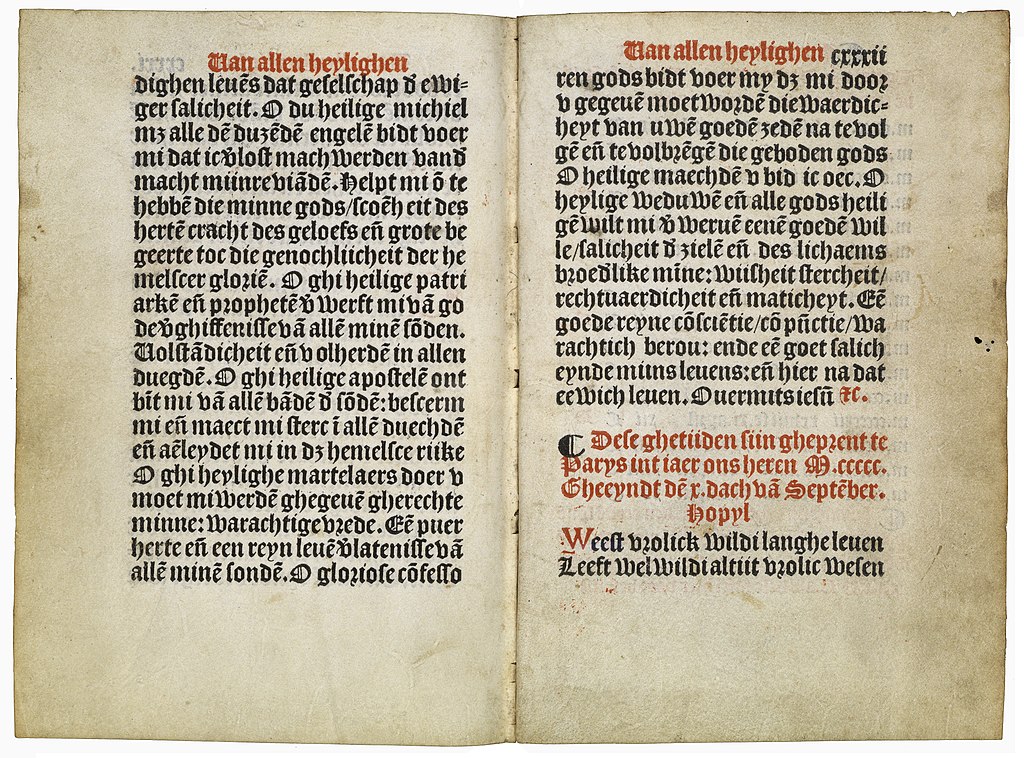 Uan allen heylighen
dighen leuēs dat geselschap đ ewi-
ger salicheit. O du heilige michiel
mʒ alle dē duʒēdē engelē bidt voer
mi dat ic v̄lost mach werden vand̄
macht miinre viādē. Helpt mi ō te
hebbē die minne gods/scoēh eit des
hertē cracht des geloefs eñ grote be
geerte toc die genochliicheit der he
melscer gloriē. O ghi heilige patri
arkē eñ prophetē v̄ werft mi vā go
de v̄ghiffenisse vā allē minē sōden.
Uolstādicheit eñ v olherdē in allen
duegdē. O ghi heilige apostelē ont
bīt mi vā allē bādē đ sōdē: bescerm
mi eñ maect mi sterc ī allē duechdē
eñ aēleydet mi in dʒ hemelsce riike
O ghi heylighe martelaers doer v
moet mi werdē ghegeuē gherechte
minne: warachtige vrede. Eē puer
herte eñ een reyn leuē v̄latenisse vā
allē minē sondē. O gloriose cōfesso
Uan allen heylighen cxxxii
ren gods bidt voer my dʒ mi door
v gegeuē moet wordē die waerdic-
heyt van uwē goedē ʒedē na te vol
gē eñ te volbrēgē die geboden gods
O heilige maechdē v bid ic oec. O
heylige weduwē eñ alle gods heili
gē wilt mi v̄ weruē eenē goedē wil
le/salicheit đ zielē eñ des lichaems
broedlike mīne: wiisheit stercheit/
rechtuaerdicheit eñ maticheyt. Eē
goede reyne cōsciētie/cō pūctie/wa
rachtich berou: ende eē goet salich
eynde miins leuens: eñ hier na dat
eewich leuen. Ouermits iesū ꝛc.
¶ Dese ghetiiden siin gheprent te
Parys int iaer ons heren M.ccccc.
Gheeyndt dē x. dach vā Septēber.
Hopyl
Weest vrolick wildi langhe leuen
Leeft wel wildi altiit vrolic wesen